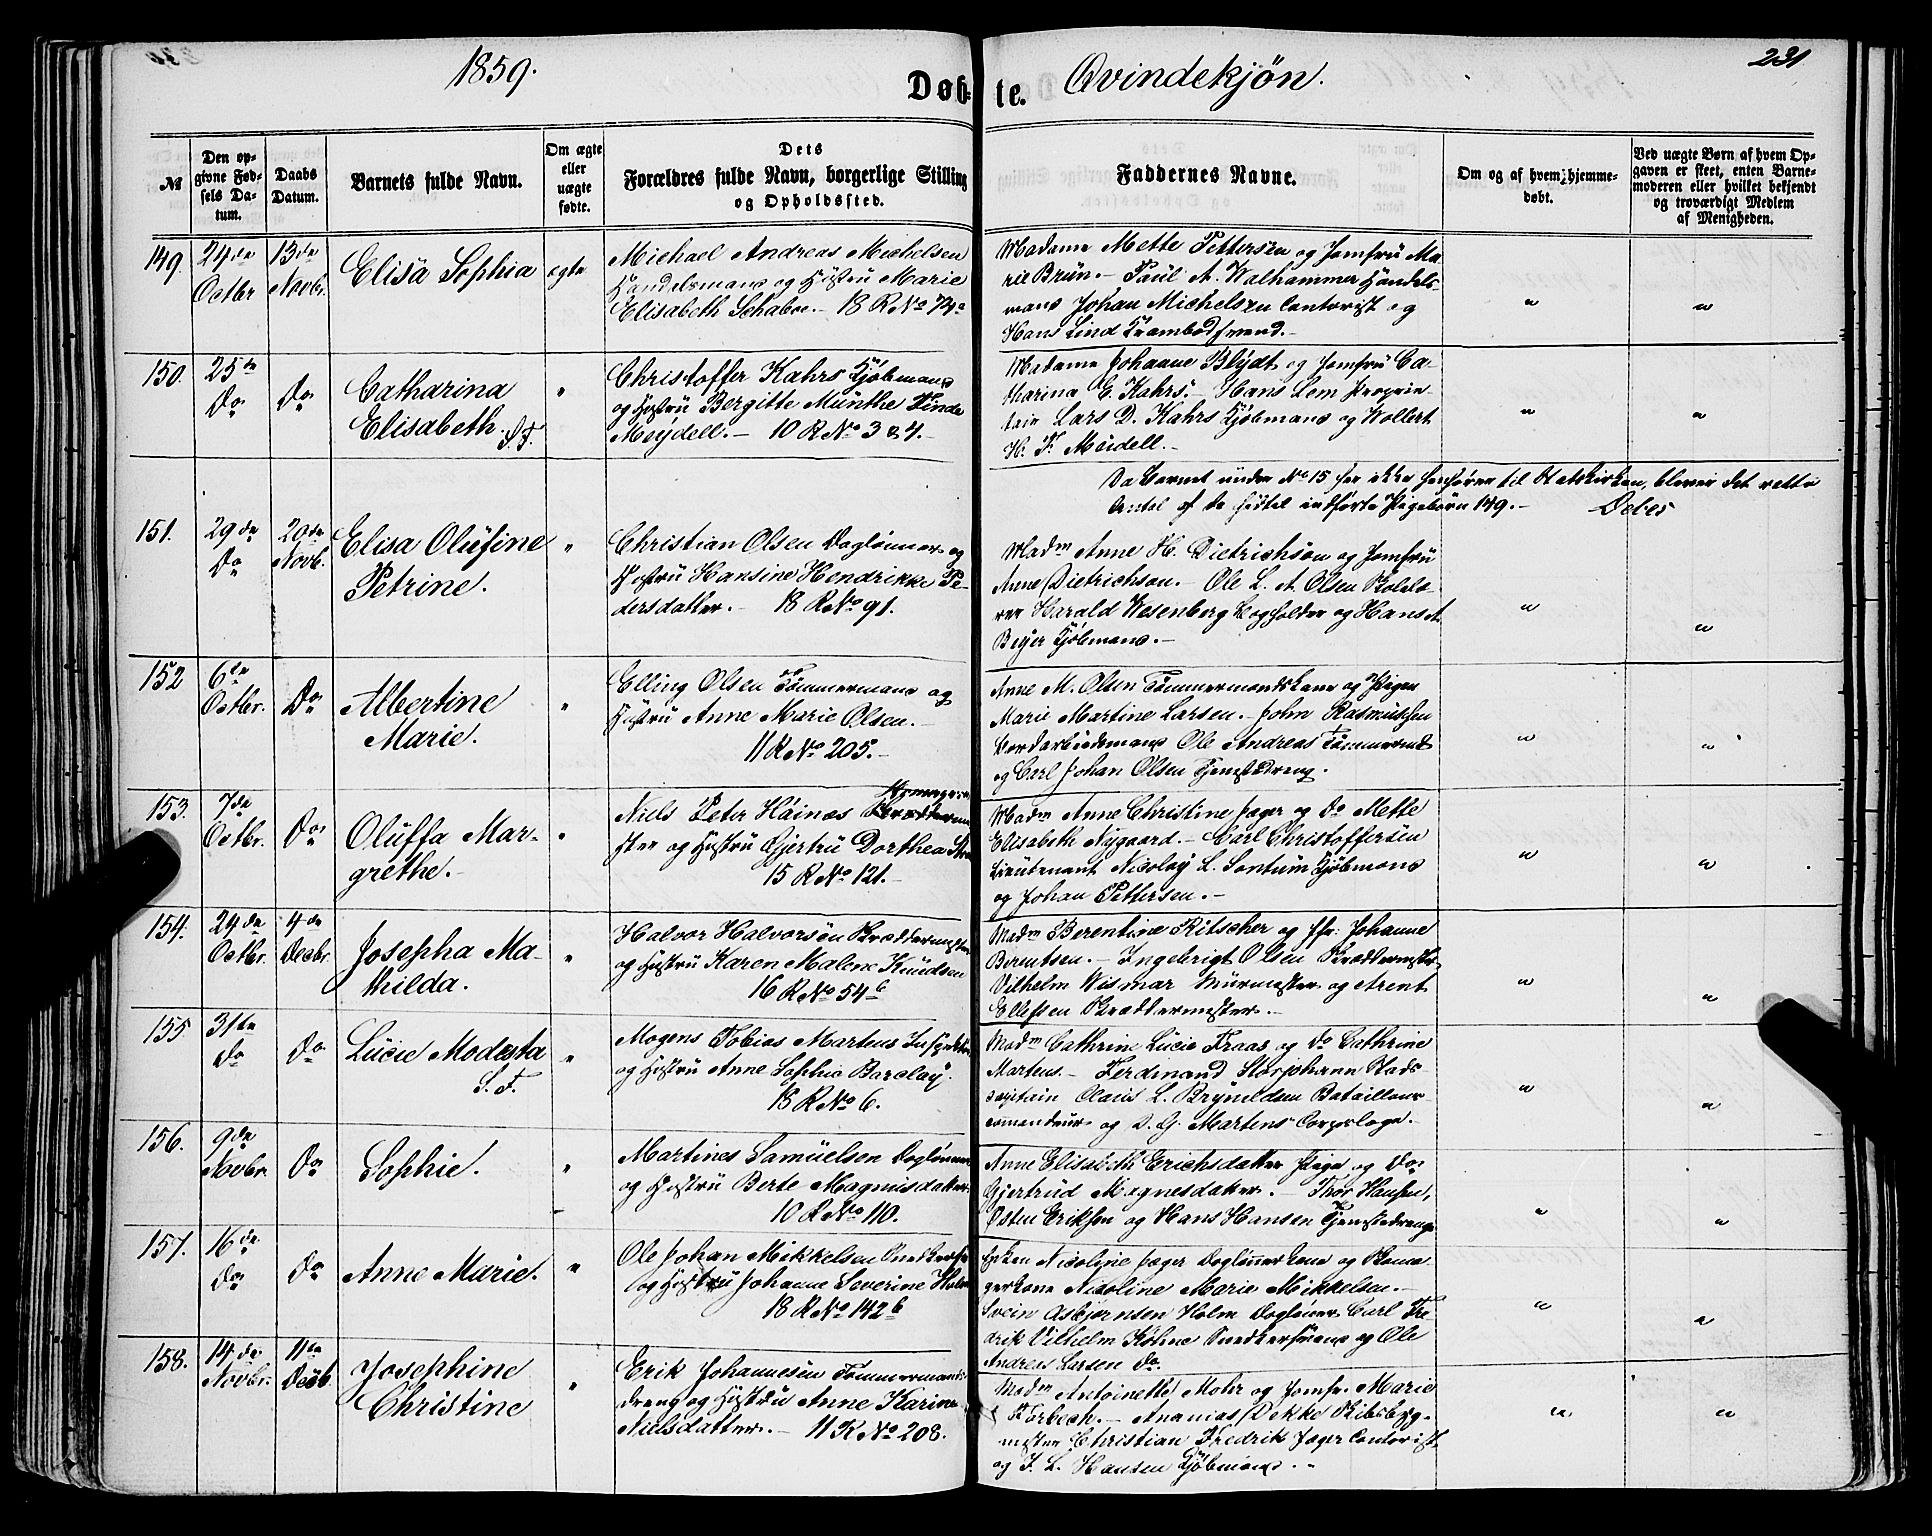 1859.
Døbte.
Qvindekjøn.
231
№
Den opgivne Fødsels Datum.
Daabs Datum.
Barnets fulde Navn.
Om ægte eller uægte fødte.
Dets Forældres fulde Navn, borgerlige Stilling og Opholdssted.
Faddernes Navne.
Om og af hvem hjemmedøbt.
Ved uægte Børn af hvem Opgaven er skeet, enten Barnemoderen eller hvilket bekjendt og troværdigt Medlem af Menigheden.
149. 24de Octbr 13de Novbr. Elisa Sophia ægte
Michael Andreas Michelsen
Handelsmand og Hustru Marie
Elisabeth Schaboe. – 18 R No 74a
Madame Mette Pettersen og Jomfru Ma
rie Brun. – Paul A. Walhammer Handels-
mand Johan Michelsen Contorist og
Hans Lind Krambodsvend. –
150. 25de Do Do Catharina
Elisabeth. S.T. "
Christoffer Kahrs Kjøbmand
og Hustru Bergitte Munthe Vinde
Meydell. – 10 R No 3 & 4. –
Madame Johanne Blydt og Jomfru Ca-
tharina E. Kahrs. – Hans Lem Proprie-
tair Lars D. Kahrs Kjøbmand og Wollert
H. F. Meidell. –
Da Barnet under No 15 her ikke henhører til Statskirken, bliver det rette
Antal af de hidtil indførte Pigebørn 149. – Debes
151. 29de Do 20de Novb. Elisa Olufine
Petrine. "
Christian Olsen Dagleinner og
Hustru Hansine Hendrikke Pe-
dersdatter. – 18 R No 91.
Madm Anne H. Dietrichson og Jomfru
Anne Dietrichson. – Ole L. A. Olsen
Harald Wesenberg Bogholder og Hans A
Beyer Kjøbmand. –
152 6te Octbr. Do Albertine
Marie. "
Elling Olsen Tømmermand og
Hustru Anne Marie Olsen. –
11 R No 205. –
Anne M. Olsen Tømmermandskone og Pigen
Marie Martine Larsen. – John Rasmussen
Jordarbeidsmand Ole Andreas Tømmermd
og Carl Johan Olsen Tjenestedreng.
153. 7de Octbr. Do Oluffa Mar-
grethe. – "
Niels Peter Hainas
ster og Hustru Gjertru Dorthea
15 R No 121. –
Madm Anne Christine Jæger og Do Mette
Elisabeth Nygaard. – Carl Christoffersen
Lieutenant Nicolay L. Sontum Kjøbmand
og Johan Pettersen. –
154. 24de Octbr. 4de Decbr. Josepha Ma-
thilda. "
Halvor Halvorsen Skræddermester
og Hustru Karen Malene Knudsen
16 R No 54b
Madm Berentine Ritscher og Jfr. Johanne
Berentsen. – Ingebrigt Olsen Skræddermester
Vilhelm Wismar Murmester og Arent
Ellefsen Skræddermester. –
155. 31te Do Do Lucie Modesta
S.T. "
Mogens Tobias Martens Inspektør
og Hustru Anne Sophia Barclay.
18 R No 6.
Madm Cathrine Lucie Fraas og Do Cathrine
Martens. – Ferdinand Storjohann Stads-
capitain Claus L. Brynildsen Bataillons-
comandeur og D. G. Martens Corpslæge. –
156. 9de Novbr. Do Sophie. "
Martines Samuelsen Dagleinner
og Hustru Berte Magnusdatter
10 R No 110.
Anne Elisabeth Erichsdatter Pige og Do
Gjertrud Magnesdatter. – Thor Hansen,
Østen Eriksen og Hans Hansen Tjenestedrenge
157. 16de Do Do Anne Marie. "
Ole Johan Mikkelsen Snedkersv
og Hustru Johanne Severine Holm
18 R No 142b
Enken Nicoline Jæger Dagleinnerkone og
Nicoline Marie Mikkelsen. –
Svein Asbjørnsen Holm Dagleiner Carl Fre
drik Vilhelm Köhne Snedkersvend og Ole
Andreas Larsen Do.
158. 14de Novbr. 11te Decb. Josephine
Christine "
Erik Johannesen Tømmermands-
dreng og Hustru Anne Karine
Nielsdatter. – 11 R No 208.
Madm Antoinette Mohr og Jomfr. Marie
Forbech. – Ananias Dekke Skibsbyg-
mester Christian Fredrik Jæger Contorist
og J. L. Hansen Kjøbmand. "